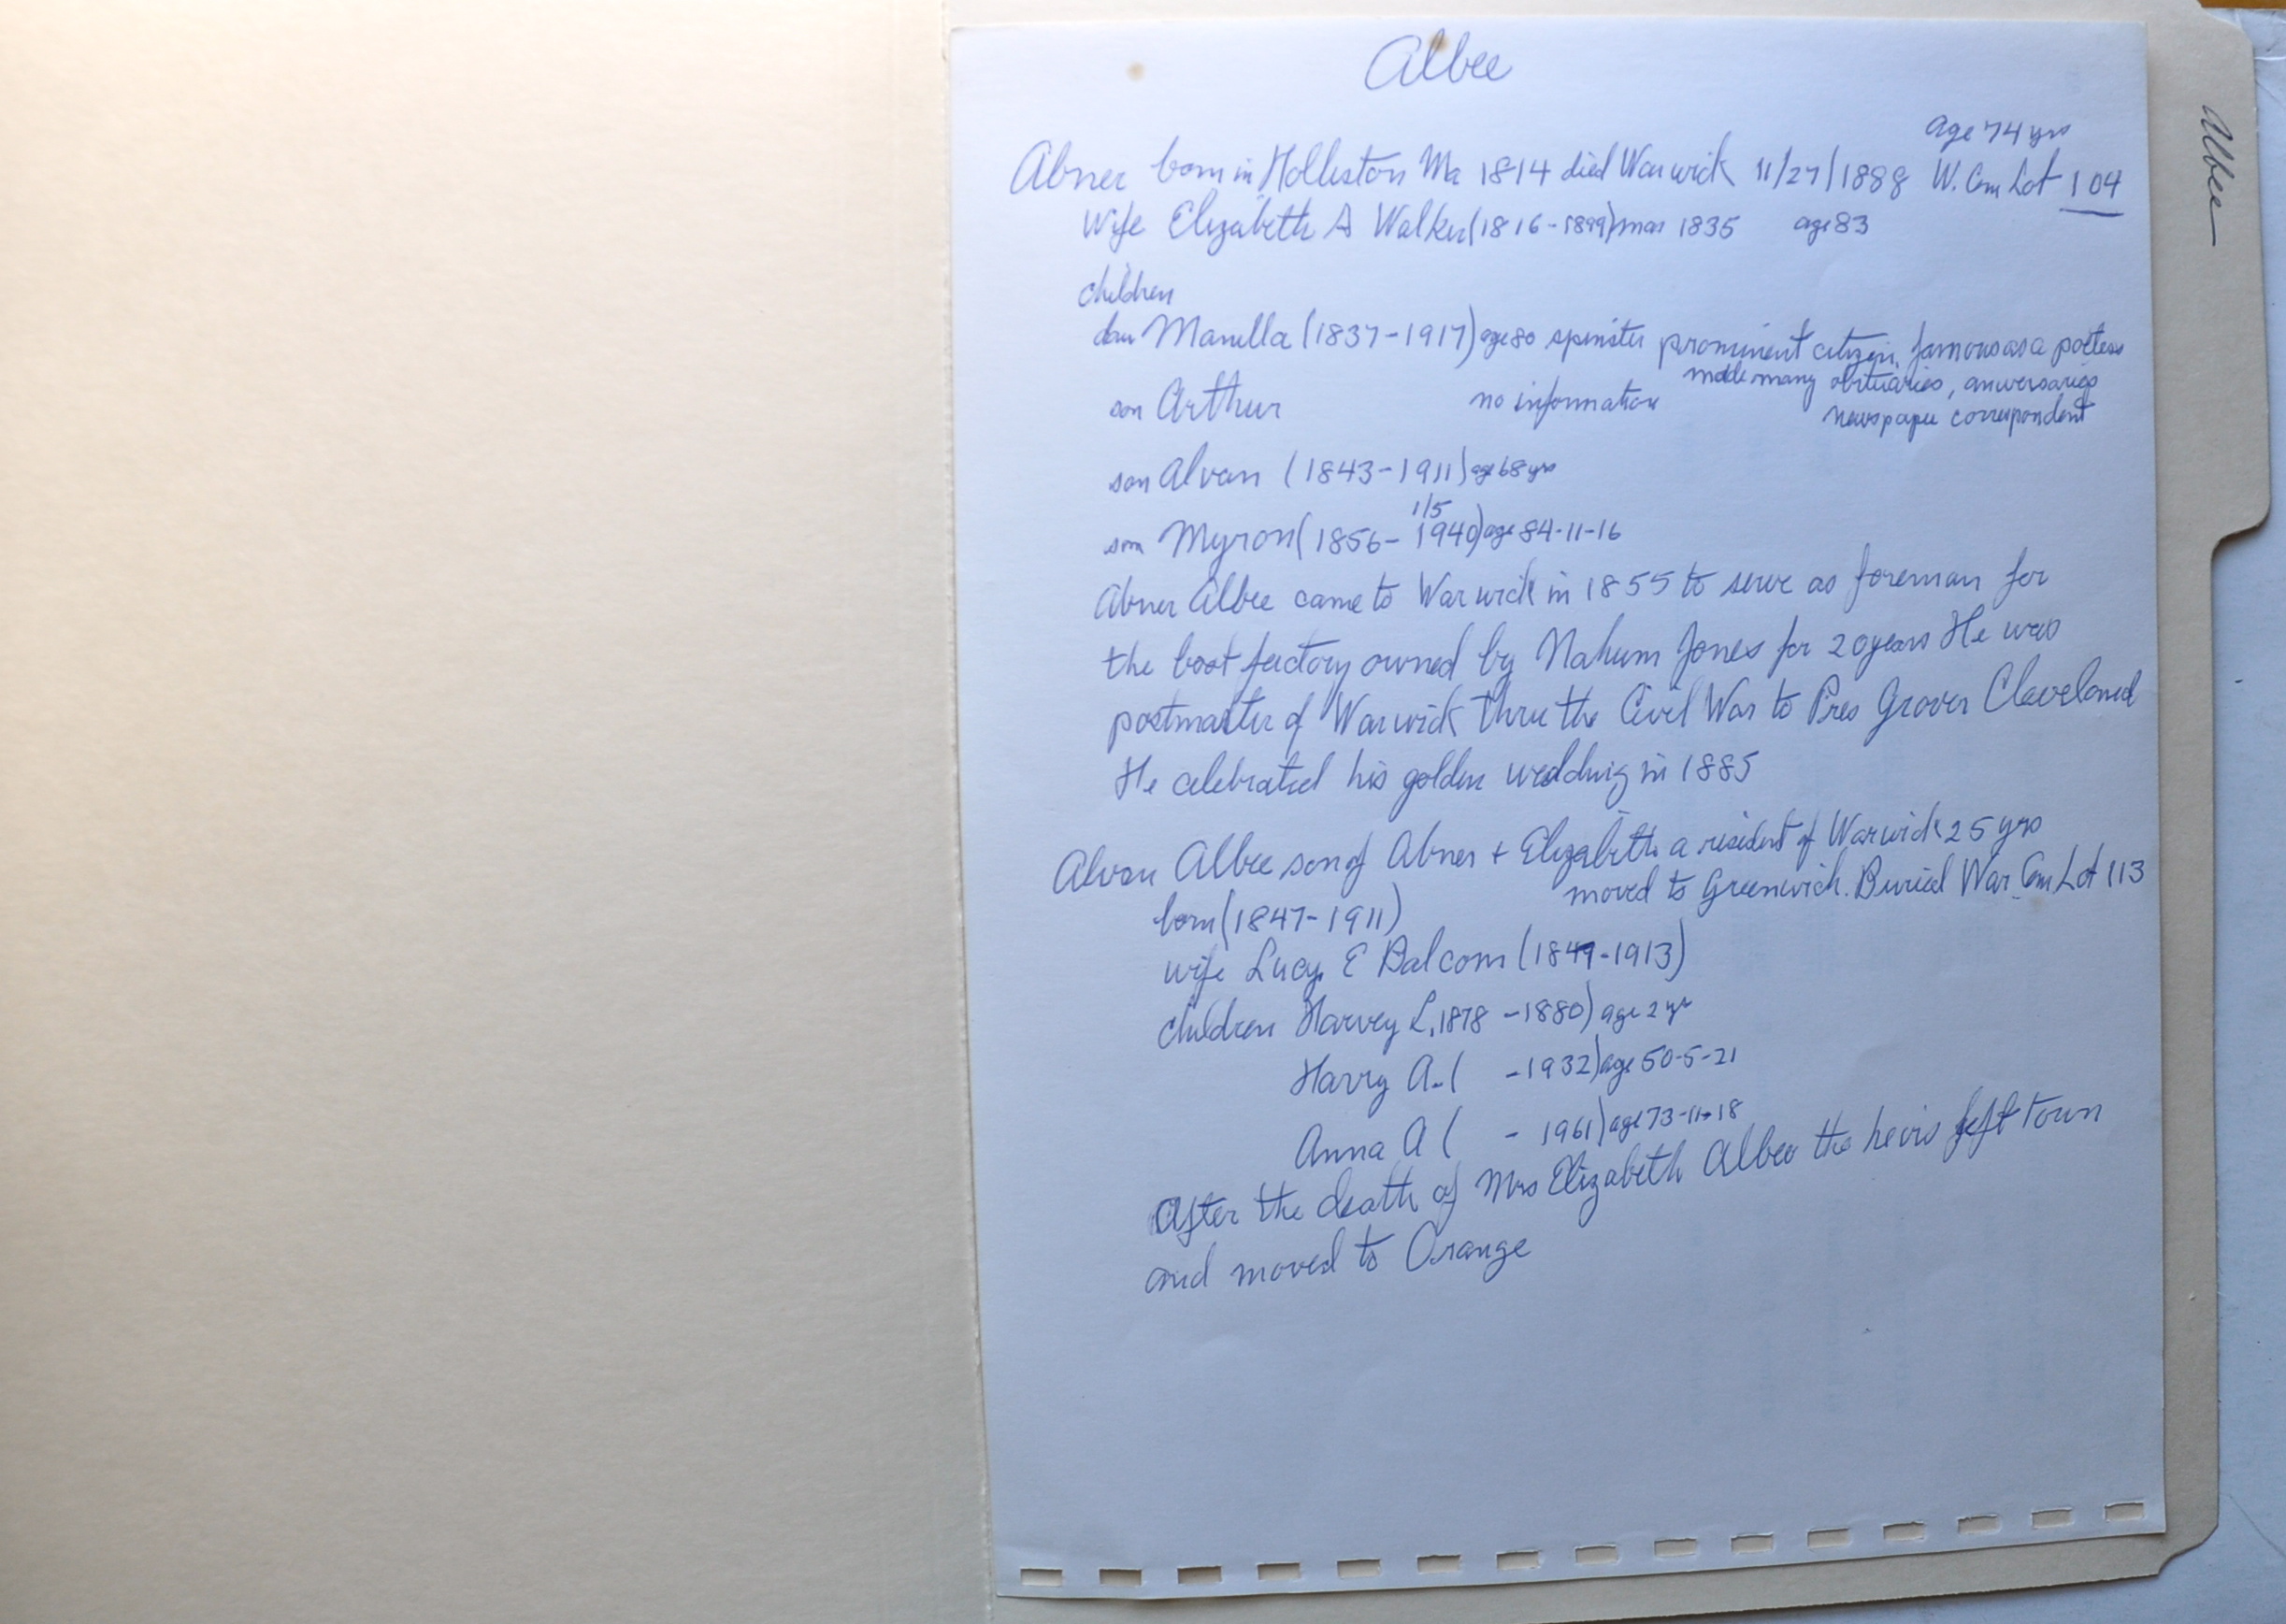 Albee
Albee
age 74 yrs
Abner born in Holliston Ma 1814 died Warwick 11/27/1888 W. Cem Lot 104
Wife Elizabeth A Walker (1816-1899) mar 1835 age 83
children
dau Manella (1837-1917) age 80 spinster prominent citizen, famous as a poetess
made many obituaries, anversaries
son Arthur no information
newspaper correspondent
son Alvan (1843-1911) age 68 yrs
1/5
son Myron (1856-1940) age 84-11-16
Abner Albee came to Warwick in 1855 to serve as foreman for
the boot factory owned by Nahum Jones for 20 years He was
postmaster of Warwick thru the Civil War to Pres Grover Cleveland
He celebrated his golden wedding in 1885
Alvan Albee son of Abner + Elizabeth a resident of Warwick 25 yrs
moved to Greenwich. Buried War. Cem Lot 113
born (1847-1911)
wife Lucy E Balcom (1849-1913)
children Harvey L, 1878 - 1880) age 2 yr
Harry A. ( - 1932) age 50-5-21
Anna A ( - 1961) age 73-11-18
After the death of Mrs Elizabeth Albee the heirs left town
and moved to Orange